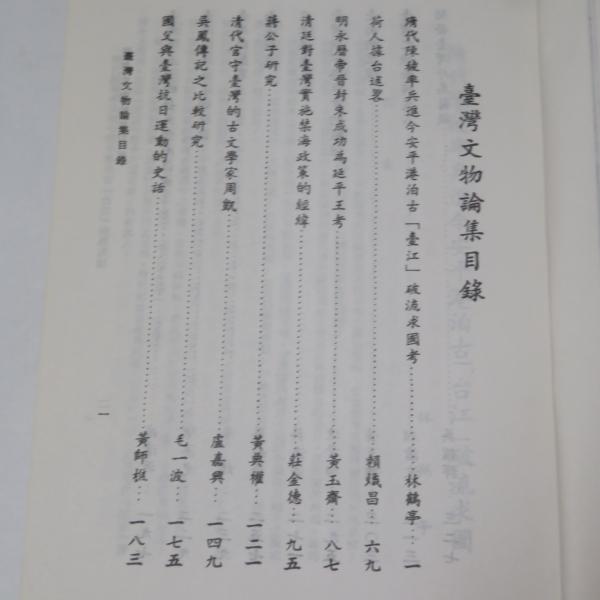 臺灣文物論集目錄
隋代陳稜率兵進今安平港泊古「臺江」破流求國考……林鶴亭…一
荷人據台述畧……賴熾昌…六九
明永曆帝晉封朱成功為延平王考……黃玉齋…八七
清廷對臺灣實施禁海政策的經緯……莊金德…九五
蔣公子研究……黃典權…一二一
清代宦守臺灣的古文學家周凱……盧嘉興…一四九
吳鳳傳記之比較研究……毛一波…一七五
國父與臺灣抗日運動的史話……黃師樵…一八三
臺灣文物論集目錄
一